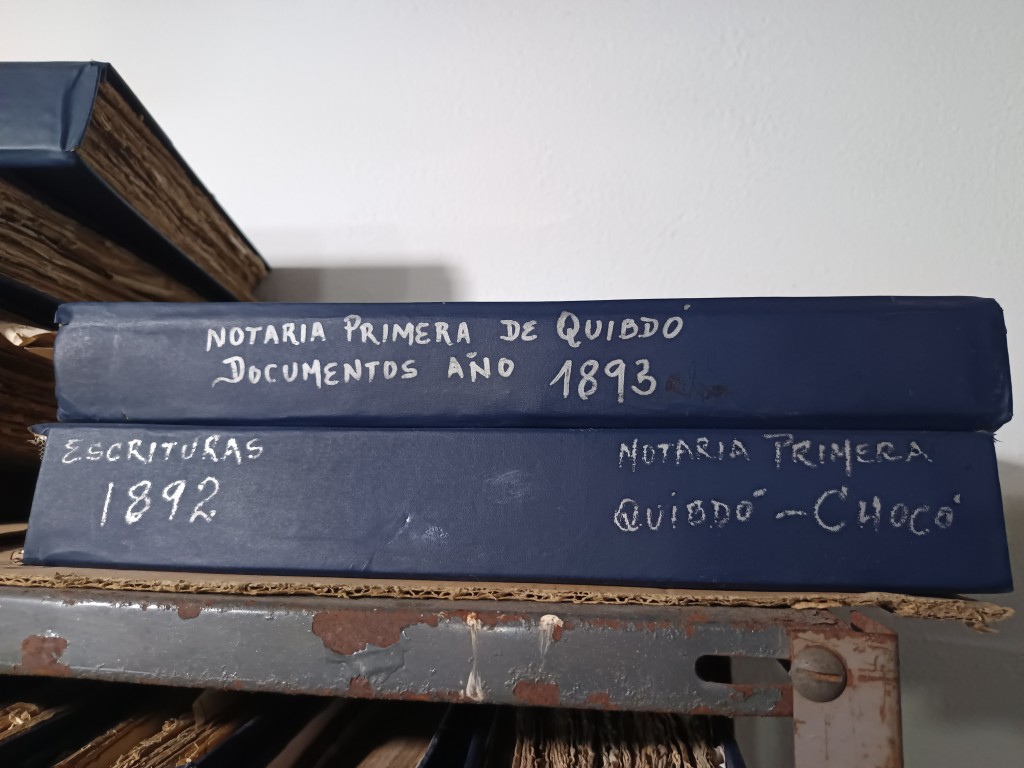 NOTARIA PRIMERA DE QUIBDÓ
DOCUMENTOS AÑO 1893
ESCRITURAS
1892
NOTARIA PRIMERA
QUIBDÓ - CHOCÓ